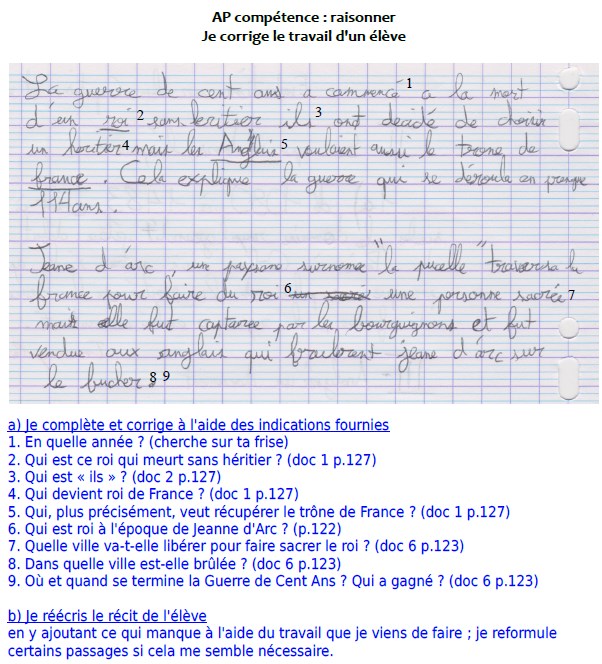 AP compétence : raisonner
Je corrige le travail d'un élève
La guerre de cent ans a commencé 1 a la mort
d'un roi 2 sans heritier ils 3 ont décidé de choisir
un heritier 4 mais les Anglais 5 voulaient aussi le trone de
france . Cela explique la guerre qui se déroula en
114 ans .
Jeane d'arc , une paysane surnome "la pucelle" traversa la
france pour faire du roi 6 une personne sacrée 7
mais elle fut capturee par les bourguignons et fut
vendue aux anglais qui brulerent jeane d'arc sur
le bucher . 8 9
a) Je complète et corrige à l'aide des indications fournies
1. En quelle année ? (cherche sur ta frise)
2. Qui est ce roi qui meurt sans héritier ? (doc 1 p.127)
3. Qui est « ils » ? (doc 2 p.127)
4. Qui devient roi de France ? (doc 1 p.127)
5. Qui, plus précisément, veut récupérer le trône de France ? (doc 1 p.127)
6. Qui est roi à l'époque de Jeanne d'Arc ? (p.122)
7. Quelle ville va-t-elle libérer pour faire sacrer le roi ? (doc 6 p.123)
8. Dans quelle ville est-elle brûlée ? (doc 6 p.123)
9. Où et quand se termine la Guerre de Cent Ans ? Qui a gagné ? (doc 6 p.123)
b) Je réécris le récit de l'élève
en y ajoutant ce qui manque à l'aide du travail que je viens de faire ; je reformule
certains passages si cela me semble nécessaire.